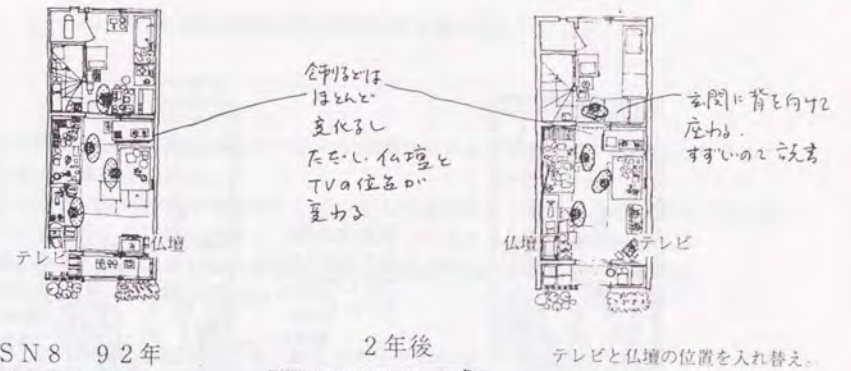 飾るとは
ほとんど
変化なし
ただし、仏壇と
TVの位置が
変わる
玄関に背を向けて
座わる.
すずしいので 読書
テレビ
仏壇
仏壇
テレビ
SN8 92年
2年後
テレビと仏壇の位置を入れ替え。